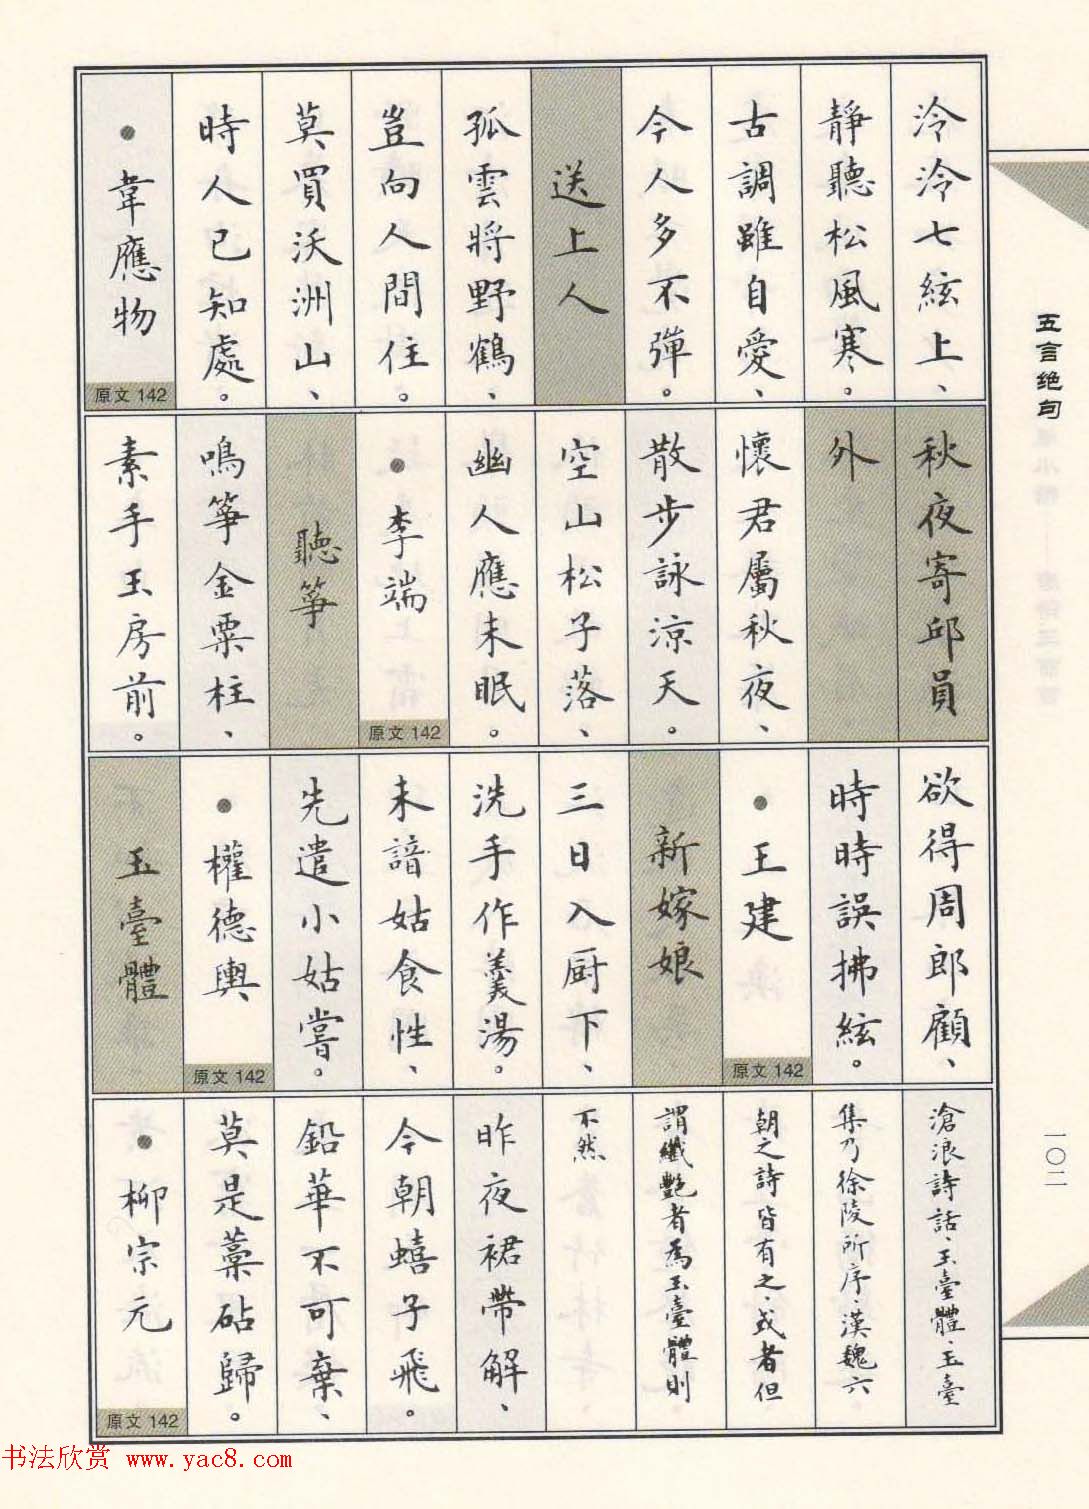 泠泠七絃上、
靜聽松風寒。
古調雖自愛、
今人多不彈。
送上人
孤雲將野鶴、
豈向人間住。
莫買沃洲山、
時人已知處。
●韋應物
原文142
秋夜寄邱員
外
懷君屬秋夜、
散步詠涼天。
空山松子落、
幽人應未眠。
●李端
原文142
聽箏
鳴箏金粟柱、
素手玉房前。
欲得周郎顧、
時時誤拂絃。
●王建
原文142
新嫁娘
三日入厨下、
洗手作羹湯。
未諳姑食性、
先遣小姑嘗。
●權德輿
原文142
玉臺體
滄浪詩話、玉臺體、玉臺
集乃徐陵所序、漢魏六
朝之詩皆有之、或者但
謂纖艷者為玉臺體則
不然
昨夜裙帶解、
今朝蟢子飛。
鉛華不可棄、
莫是藁砧歸。
●柳宗元
原文142
五言绝句
一〇二
书法欣赏 www.yac8.com